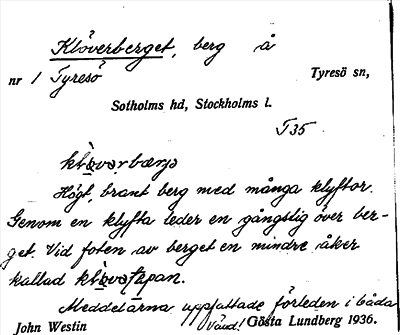 Klöverberget, berg å
nr 1 Tyresö Tyresö sn,
Sotholms hd, Stockholms l.
T35
Högt, brant berg med många klyftor.
Genom en klyfta leder en gångstig över ber-
get. Vid foten av berget en mindre åker
kallad
Meddelarna uppfattade förleden i båda
Vänd!
John Westin Gösta Lundberg 1936.